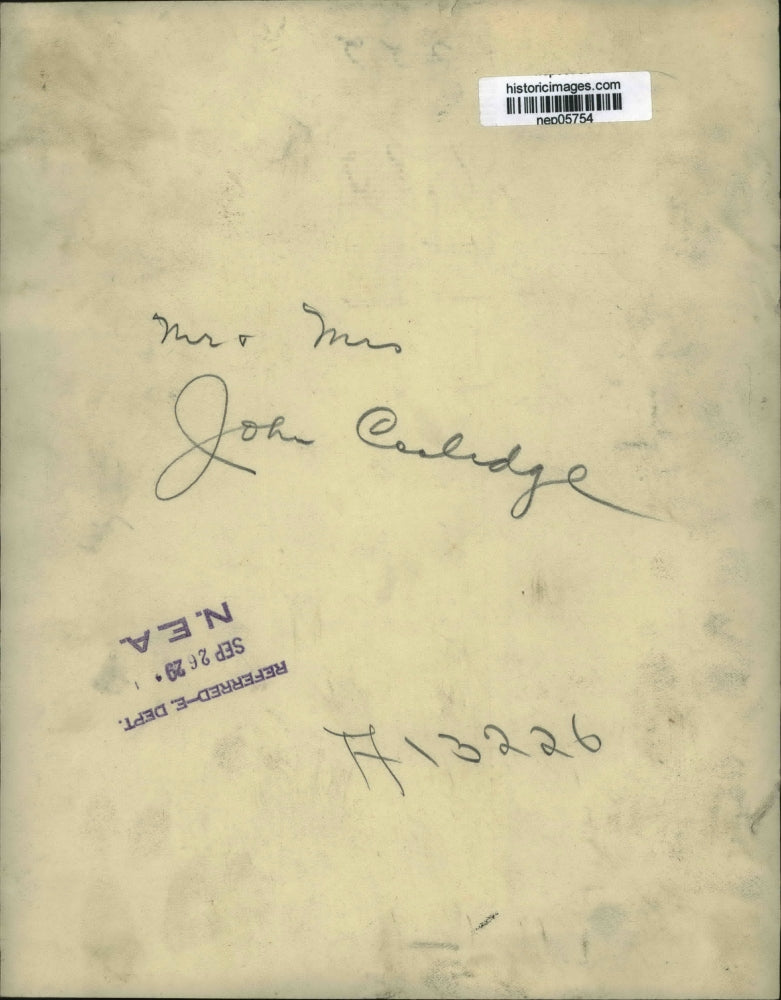 historicimages.com
nep05754
Mr & Mrs
John Coolidge
REFERRED-E. DEPT.
SEP 26 29
N.E.A.
A13226